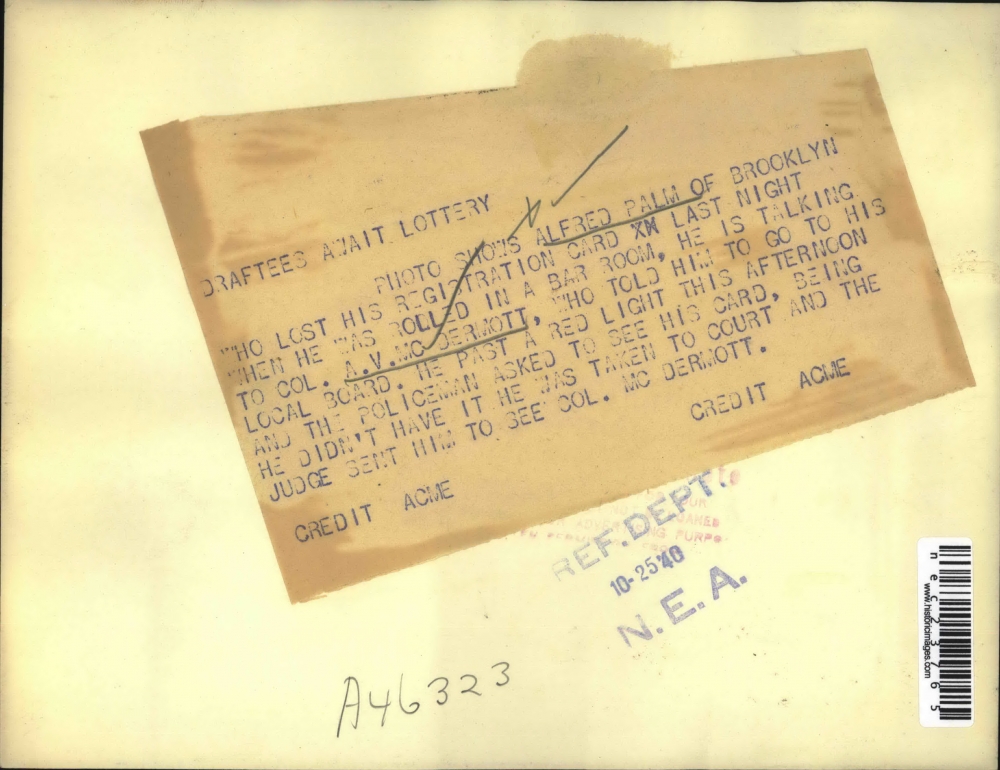 DRAFTEES AWAIT LOTTERY
PHOTO SHOWS ALFRED PALM OF BROOKLYN
WHO LOST HIS REGISTRATION CARD XN LAST NIGHT
WHEN HE WAS ROLLED IN A BAR ROOM, HE IS TALKING
TO COL. A.V.MC DERMOTT, WHO TOLD HIM TO GO TO HIS
LOCAL BOARD. HE PAST A RED LIGHT THIS AFTERNOON
AND THE POLICEMAN ASKED TO SEE HIS CARD, BEING
HE DIDN'T HAVE IT HE WAS TAKEN TO COURT AND THE
JUDGE SENT HIM TO SEE COL. MC DERMOTT.
CREDIT ACME
CREDIT ACME
REF. DEPT.
10-25'40
N.E.A.
A46323
nec23765
www.historicimages.com